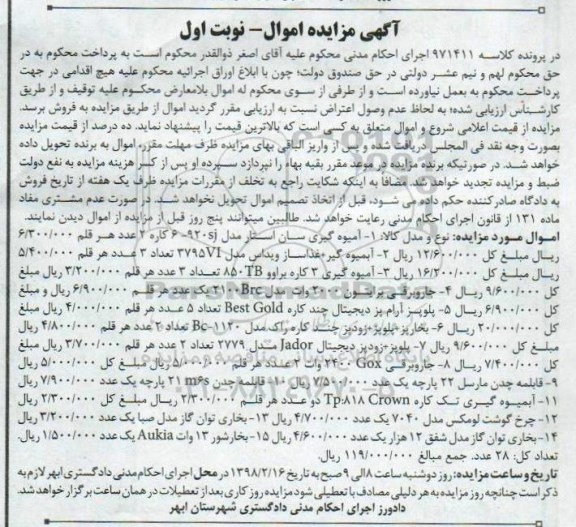 آگهی مزایده اموال – نوبت اول
در پرونده کلاسه ۹۷۱۴۱۱ اجرای احکام مدنی محکوم علیه آقای اصغر ذوالقدر محکوم است به پرداخت محکوم به در
حق محکوم لهم و نیم عشر دولتی در حق صندوق دولت؛ چون با ابلاغ اوراق اجرائیه محکوم علیه هیچ اقدامی در جهت
پرداخت محکوم به بعمل نیاورده است و از طرفی از سوی محکوم له اموال بلامعارض محکوم علیه توقیف و از طریق
کارشناس ارزیابی شده؛ به لحاظ عدم وصول اعتراض نسبت به ارزیابی مقرر گردید اموال از طریق مزایده به فروش برسد.
مزایده از قیمت اعلامی شروع و اموال متعلق به کسی است که بالاترین قیمت را پیشنهاد نماید. ده درصد از قیمت مزایده
بصورت وجه نقد فی المجلس دریافت شده و پس از واریز الباقی بهای مزایده ظرف مهلت مقرر اموال به برنده تحویل داده
خواهد شد. در صورتیکه برنده مزایده در موعد مقرر بقیه بهاء را نپردازد سپرده او پس از کسر هزینه مزایده به نفع دولت
ضبط و مزایده تجدید خواهد شد. مضافا به اینکه شکایت راجع به تخلف از مقررات مزایده ظرف یک هفته از تاریخ فروش
به دادگاه صادرکننده حکم داده می شود، قبل از اتخاذ تصمیم اموال تحویل نخواهد شد. در صورت عدم مشتری مفاد
ماده ۱۳۱ از قانون اجرای احکام مدنی رعایت خواهد شد. طالبین میتوانند پنج روز قبل از مزایده از اموال دیدن نمایند.
اموال مورد مزایده: نوع و مدل کالا: ۱- آبمیوه گیری سان استار مدل ۹۲۰sj-۶ کاره ۲ عدد هر قلم ۶/۳۰۰/۰۰۰
ریال مبلغ کل ۱۲/۶۰۰/۰۰۰ ریال ۲- آبمیوه گیر+غذاساز ویداس مدل ۳۷۹۵VI تعداد ۳ عدد هر قلم ۵/۴۰۰/۰۰۰
ریال مبلغ کل ۱۶/۲۰۰/۰۰۰ ریال ۳- آبمیوه گیری ۳ کاره براوو ۸۵۰TB تعداد ۳ عدد هر قلم ۳/۲۰۰/۰۰۰ ریال مبلغ
کل ۹/۶۰۰/۰۰۰ ریال ۴- جاروبرقی بریتون ۲۰۰۰ وات مدل ۲۱۹۰Brc یک عدد هر قلم ۶/۹۰۰/۰۰۰ ریال و مبلغ
کل ۶/۹۰۰/۰۰۰ ریال ۵- پلوپز آرام پز دیجیتال چند کاره Best Gold تعداد ۵ عدد هر قلم ۴/۰۰۰/۰۰۰ ریال مبلغ
کل ۲۰/۰۰۰/۰۰۰ ریال ۶- بخارپز+پلوپز+زودپز چند کاره راک مدل Bc-۱۱۲۰ تعداد ۲ عدد هر قلم ۴/۸۰۰/۰۰۰ ریال
مبلغ کل ۹/۶۰۰/۰۰۰ ریال ۷- پلوپز+زودپز دیجیتال Jador مدل ۲۷۷۹ تعداد ۲ عدد هر قلم ۳/۷۰۰/۰۰۰ ریال مبلغ
کل ۷/۴۰۰/۰۰۰ ریال ۸- جاروبرقی Gox ۲۴۰۰ وات ۲ عدد هر قلم ریال مبلغ کل ۵/۰۰۰/۰۰۰ ریال
۹- قابلمه چدن مارسل ۲۲ پارچه یک عدد ۷/۵۰۰/۰۰۰ ریال ۱۰- قابلمه چدن m۶s ۲۱ پارچه یک عدد ۷/۹۰۰/۰۰۰ ریال
۱۱- آبمیوه گیری تک کاره Tp:۸۱۸ Crown دو عدد هر قلم ۲/۳۰۰/۰۰۰ ریال مبلغ کل ۲/۳۰۰/۰۰۰ ریال
۱۲- چرخ گوشت لومکس مدل ۷۰۴۰ یک عدد ۴/۷۰۰/۰۰۰ ریال ۱۳- بخاری توان گاز مدل صبا یک عدد ۳/۲۰۰/۰۰۰ ریال
۱۴- بخاری توان گاز مدل شفق ۱۲ هزار یک عدد ۴/۶۰۰/۰۰۰ ریال ۱۵- بخارشور ۱۳ وات Aukia یک عدد ۱/۵۰۰/۰۰۰ ریال.
تعداد کل: ۲۸ عدد. جمع مبالغ ۱۱۹/۰۰۰/۰۰۰ ریال.
تاریخ و ساعت مزایده: روز دوشنبه ساعت ۸ الی ۹ صبح به تاریخ ۱۳۹۸/۲/۱۶ در محل اجرای احکام مدنی دادگستری ابهر لازم به
ذکر است چنانچه روز مزایده به هر دلیلی مصادف با تعطیلی شود مزایده روز کاری بعد از تعطیلات در همان ساعت برگزار خواهد شد.
دادورز اجرای احکام مدنی دادگستری شهرستان ابهر